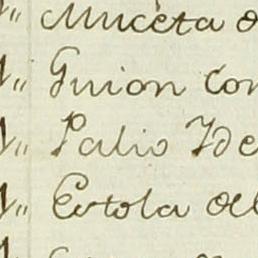 1" Muceta d
1" Guion con
1" Palio Yde
1" Estola de